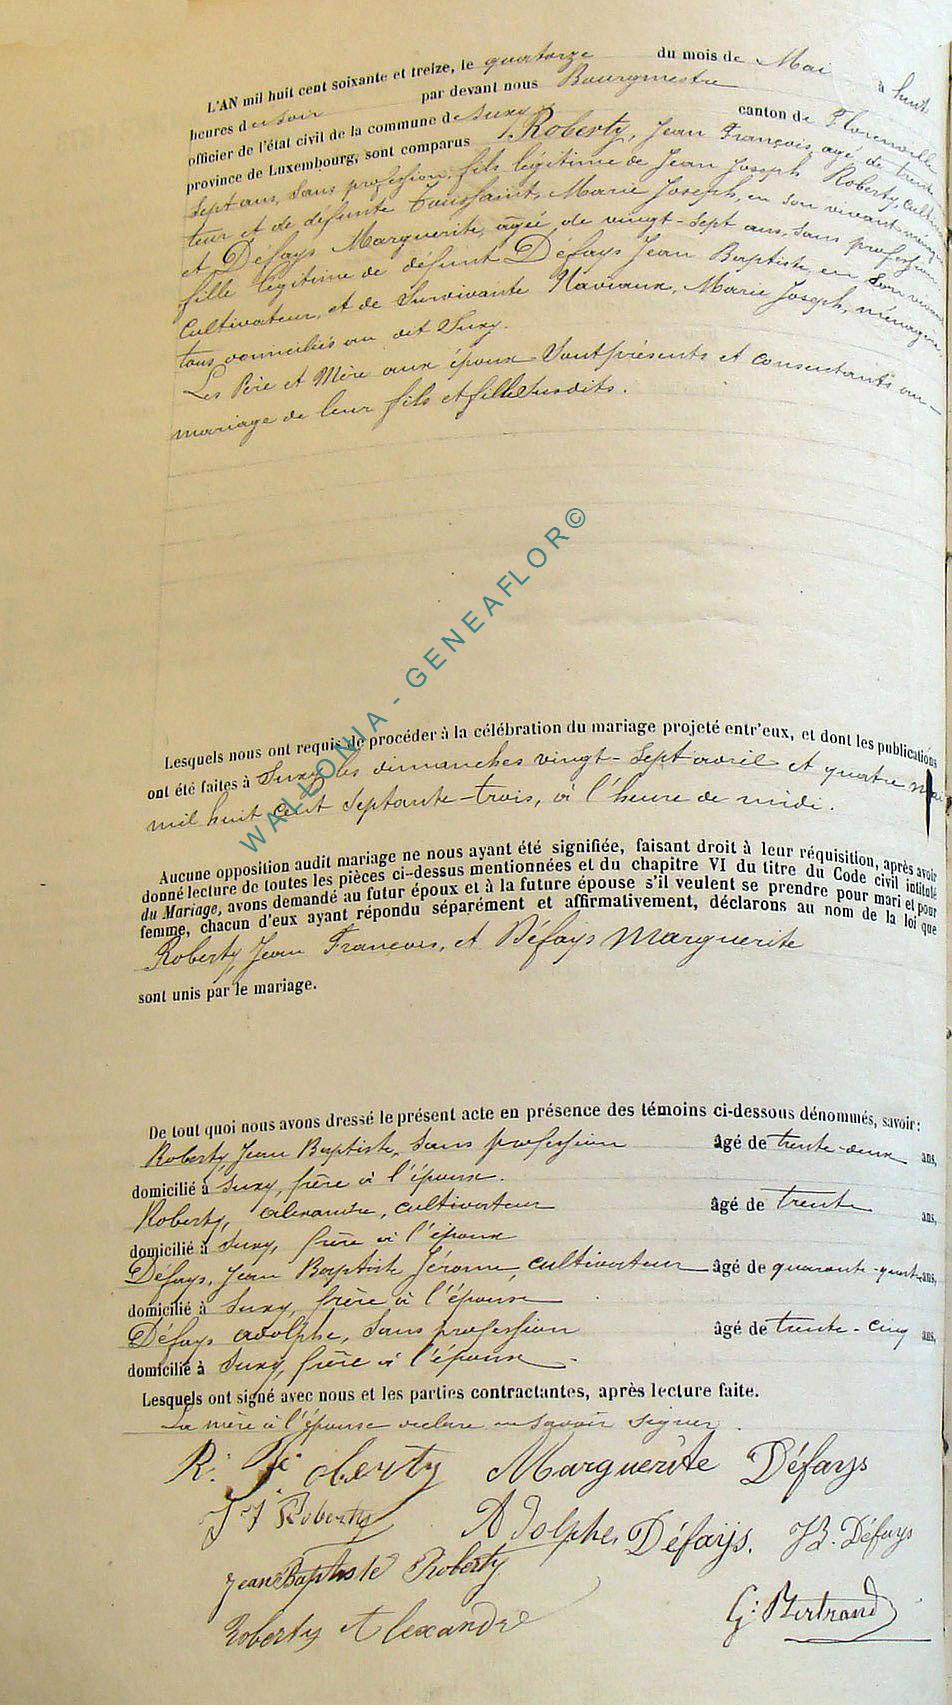 L'AN mil huit cent soixante et treize, le quatorze du mois de Mai à huit
heures du soir par devant nous Bourgmestre
officier de l'état civil de la commune de Suxy canton de Florenville
province de Luxembourg, sont comparus 1. Roberty, Jean François, agé de trente
sept ans, sans profession, fils légitime de Jean Joseph Roberty, culti-
teur et de défunte Toussaint, Marie Joseph, en son vivant
et Défays Marguerite, agée de vingt-sept ans, sans profession,
fille légitime de défunt Défays Jean Baptiste, en son vivant
Cultivateur, et de Survivante Naviaux, Marie Joseph, ménagère
tous domiciliés au dit Suxy.
Les Père et Mère aux époux Sont présents et consentants au
mariage de leur fils et fille susdits.
Lesquels nous ont requis de procéder à la célébration du mariage projeté entr'eux, et dont les publications
ont été faites à Suxy les dimanches vingt-sept avril et quatre mai
mil huit cent septante-trois, à l'heure de midi.
Aucune opposition audit mariage ne nous ayant été signifiée, faisant droit à leur réquisition, après avoir
donné lecture de toutes les pièces ci-dessus mentionnées et du chapitre VI du titre du Code civil intitulé
du Mariage, avons demandé au futur époux et à la future épouse s'il veulent se prendre pour mari et pour
femme, chacun d'eux ayant répondu séparément et affirmativement, déclarons au nom de la loi que
Roberty, Jean François, et Défays Marguerite
sont unis par le mariage.
De tout quoi nous avons dressé le présent acte en présence des témoins ci-dessous dénommés, savoir:
Roberty, Jean Baptiste, sans profession âgé de trente-deux ans,
domicilié à Suxy, frère à l'époux.
Roberty, Alexandre, cultivateur âgé de trente ans,
domicilié à Suxy, frère à l'époux
Défays, Jean Baptiste Jérome, cultivateur âgé de quarante-quatre ans,
domicilié à Suxy, frère à l'épouse
Défays Adolphe, sans profession âgé de trente-cinq ans,
domicilié à Suxy, frère à l'épouse.
Lesquels ont signé avec nous et les parties contractantes, après lecture faite.
La mère à l'épouse declare ne savoir signer
Roberty Marguerite Défays
J F Roberty Adolphe Défays. JB. Défays
Jean Baptiste Roberty
Roberty Alexandre G: Bertrand
WALLONIA - GENEAFLOR©